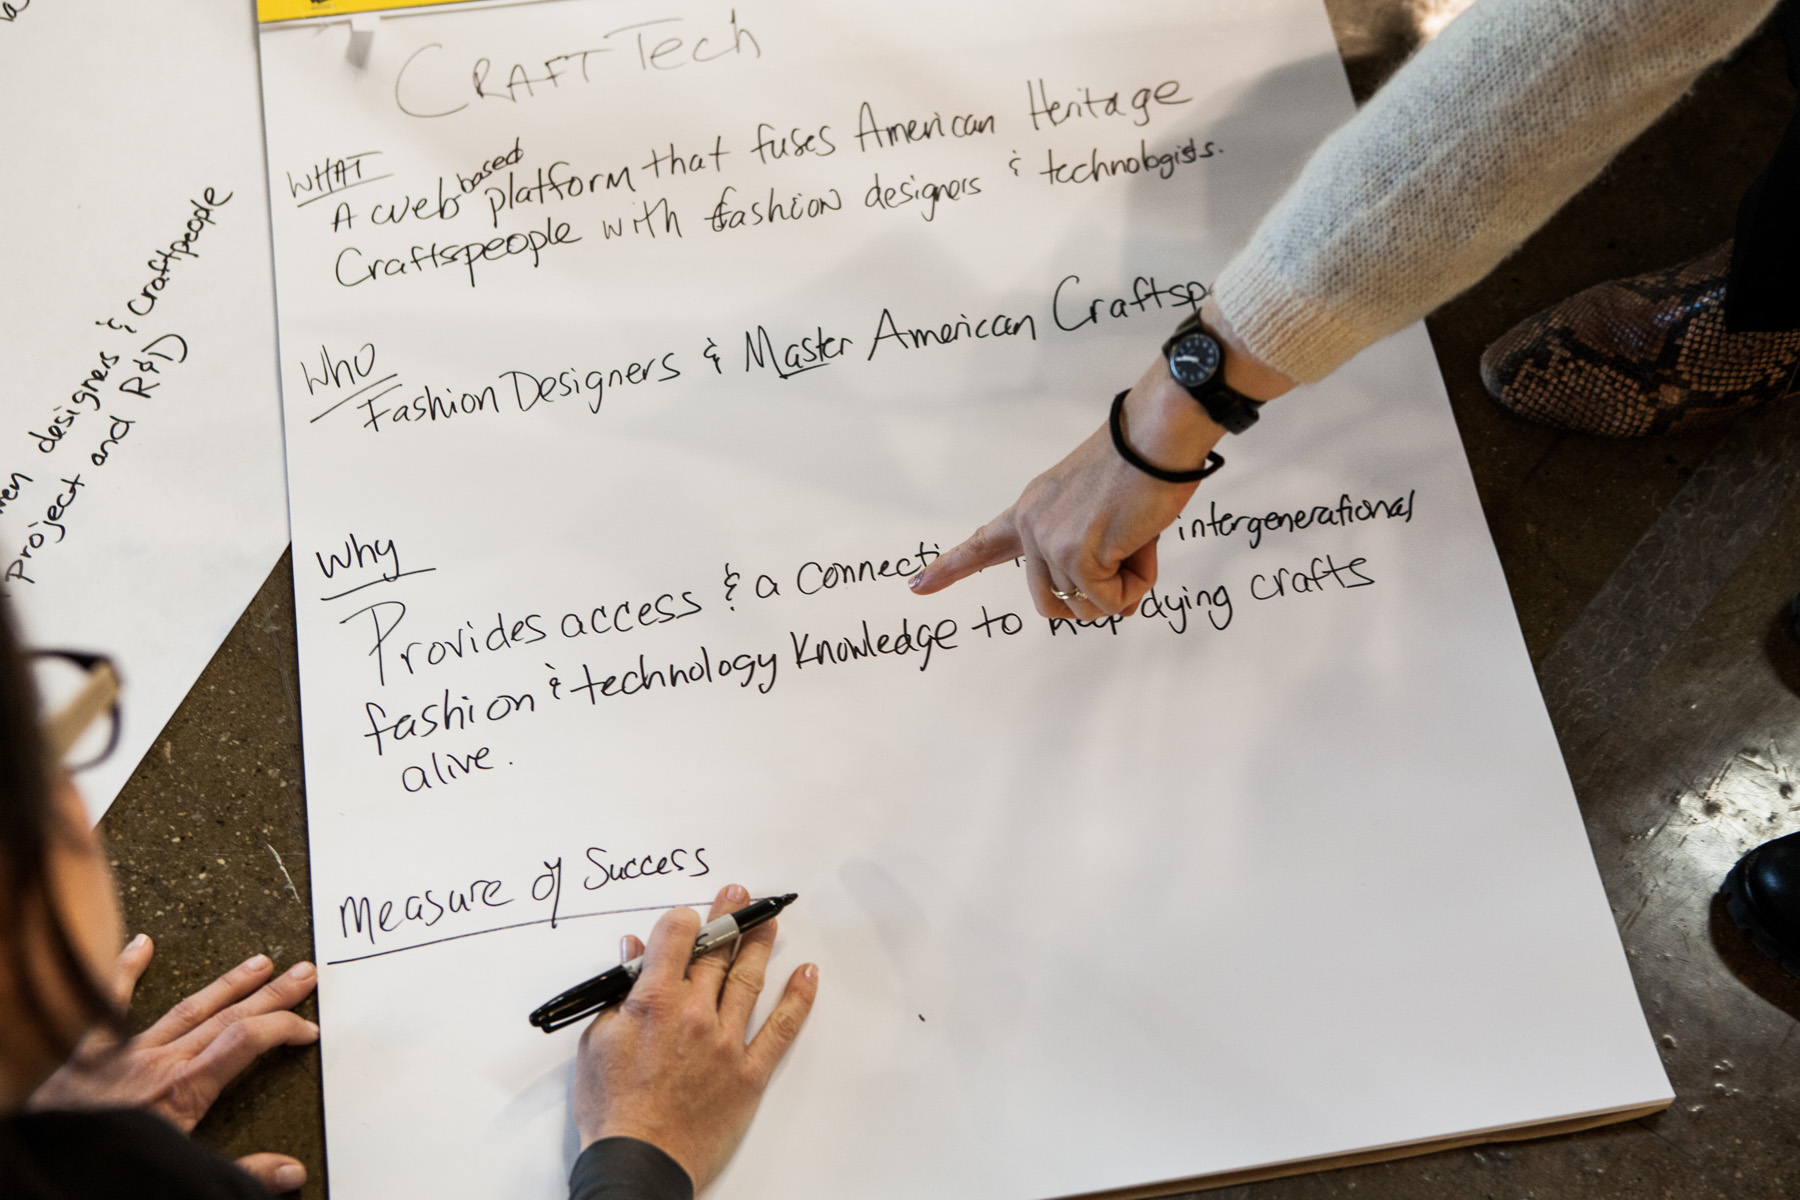 CRAFT TECH
WHAT
A web based platform that fuses American Heritage
Craftspeople with fashion designers & technologists.
Who
Fashion Designers & Master American Craftsp
Why
Provides access & a connecti intergenerational
fashion & technology knowledge to keep dying crafts
alive.
Measure of Success
designers & craftpeople
project and R&D